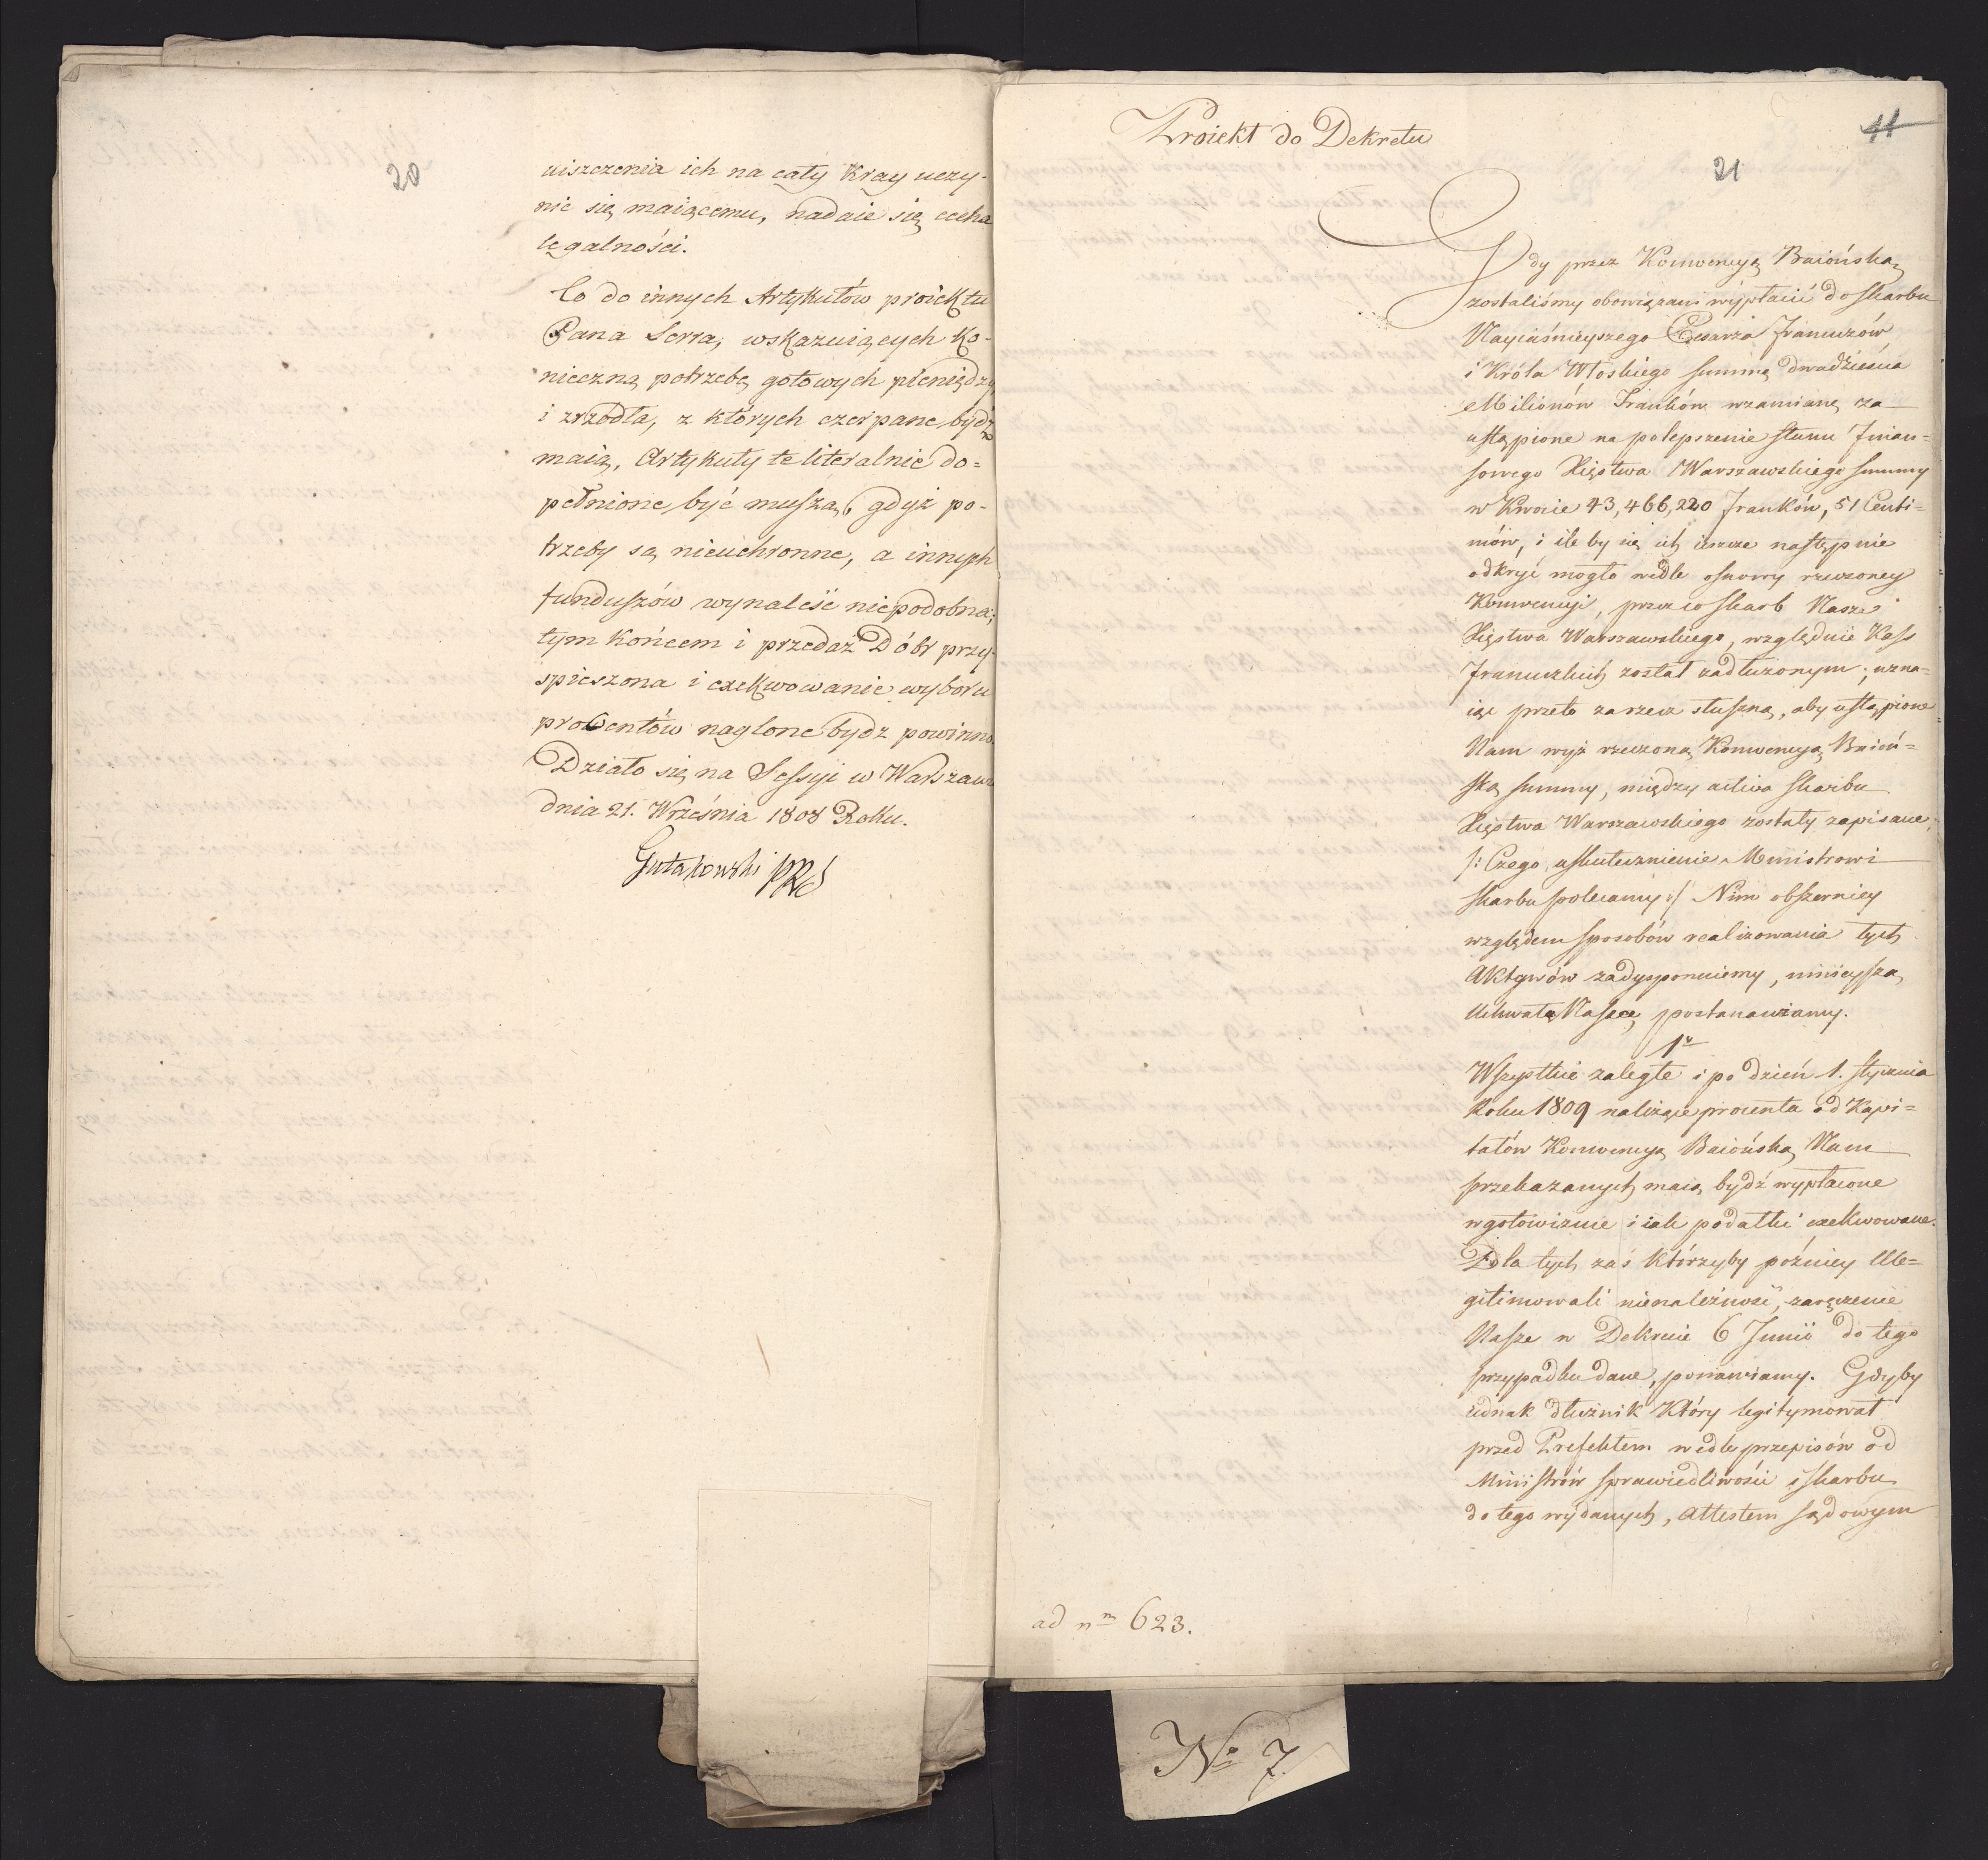 20
uiszczenia ich na cały Kray uczy-
nic się maiącemu, nadaie się cecha
legalności.
Co do innych Artykułów proiektu
Pana Serra, wskazuiących Ko-
nieczną potrzebę gotowych pieniędzy
i zrzódła, z których czerpane bydź
maią, Artykuły te literalnie do=
pełnione być muszą, gdyż po-
trzeby są nieuchronne, a innych
funduszów wynaleść niepodobna;
tym Końcem i przedaż Dóbr przy-
spieszona i exekwowanie wyboru
procentów naglone bydz powinno.
Działo się na Sessyi w Warszawie
dnia 21. Września 1808 Roku.
Gutakowski PRS
Proiekt do Dekretu
11
21
Gdy przez Konwencyą Baiońską
zostaliśmy obowiązani wypłacić do skarbu
Nayiaśnieyszego Cesarza Francuzów
i Króla Włoskiego summę dwadzieścia
Milionów Franków wzamianę za
ustąpione na polepszenie stanu Finan=
sowego Xięstwa Warszawskiego summy
w Kwocie 43,466,220 Franków, 51 Centi=
mów, i ile by się ich ieszcze następnie
odkryć mogło wedle osnowy rzeczoney
Konwencyi, przez co skarb Nasze
Xięstwa Warszawskiego, względnie Kass
Francuzkich został zadłużonym; uzna=
iąc przeto za rzecz słuszną, aby ustąpione
Nam wyż rzeczoną Konwencyą Baioń=
ską summy, między activa skarbu
Xięstwa Warszawskiego zostały zapisane;
/: Czego uskutecznienie Ministrowi
skarbu polecamy :/ Nim obszerniey
względem sposobów realizowania tych
Aktywów zadysponuiemy, ninieyszą
Uchwałą Naszą postanawiamy.
1º
Wszystkie zaległe i po dzień 1. stycznia
Roku 1809 należące procenta od Kapi=
tałów Konwencyą Baiońską Nam
przekazanych maią bydź wypłacone
w gotowiznie i iak podatki exekwowane.
Dla tych zaś Którzyby poźniey Ule=
gitimowali nienależność, zaręczenie
Nasze w Dekrecie 6 Junii do tego
przypadku dane, ponawiamy. Gdyby
iednak dłużnik Który legitymował
przed Prefektem wedle przepisów od
Ministrów sprawiedliwości i skarbu
do tego wydanych, Attestem sądowym
ad nm 623.
No 7.